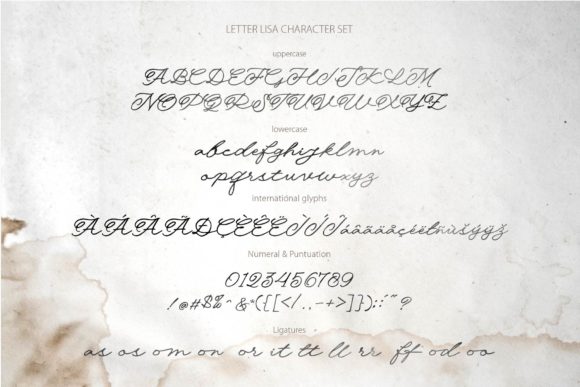 LETTER LISA CHARACTER SET
uppercase
ABCDEFGHIJKLM
NOPQRSTUVWXYZ
lowercase
abcdefghijklmn
opqrstuvwxyz
international glyphs
Numeral & Puntuation
0123456789
!@#$%^&*({[</.,-+>]}):;'"?
Ligatures
as os om on or it tt ll rr ff od oo